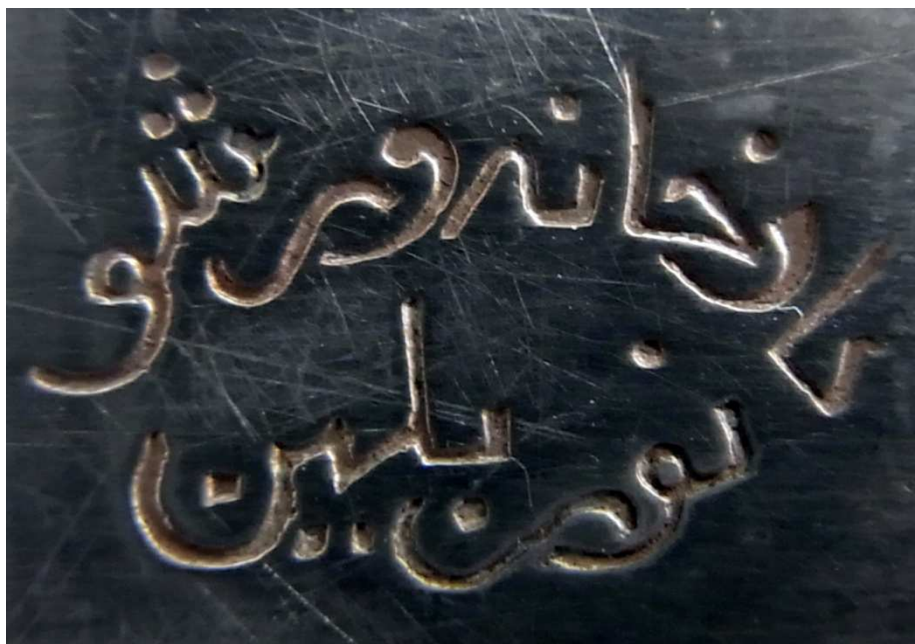 کارخانه ورشو
نوربلین